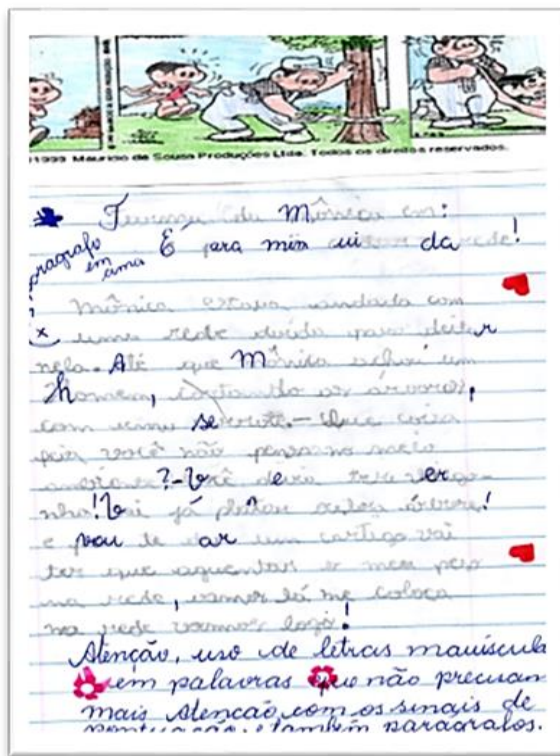 ©1999 Mauricio de Sousa Produções Ltda. Todos os direitos reservados.
Turma da Mônica em:
É para mim da rede!
paragrafo
em
cima
x
Mônica estava andado com
uma rede doida para deitar
nela. Até que Mônica achou um
homem, cortando as árvores,
com uma serrote. - Que coisa
você não pensa no meio
ambiente?-Você devia ter vergo-
nha! Vai já plantar outra árvore!
e vou te dar um castigo vai
ter que aguentar o meu peso
na rede, vamos lá me coloca
na rede vamos logo!
Atenção, uso de letras mauíscula
em palavras que não precisam
mais Atencão com os sinais de
pontuação. e também paragrafos.